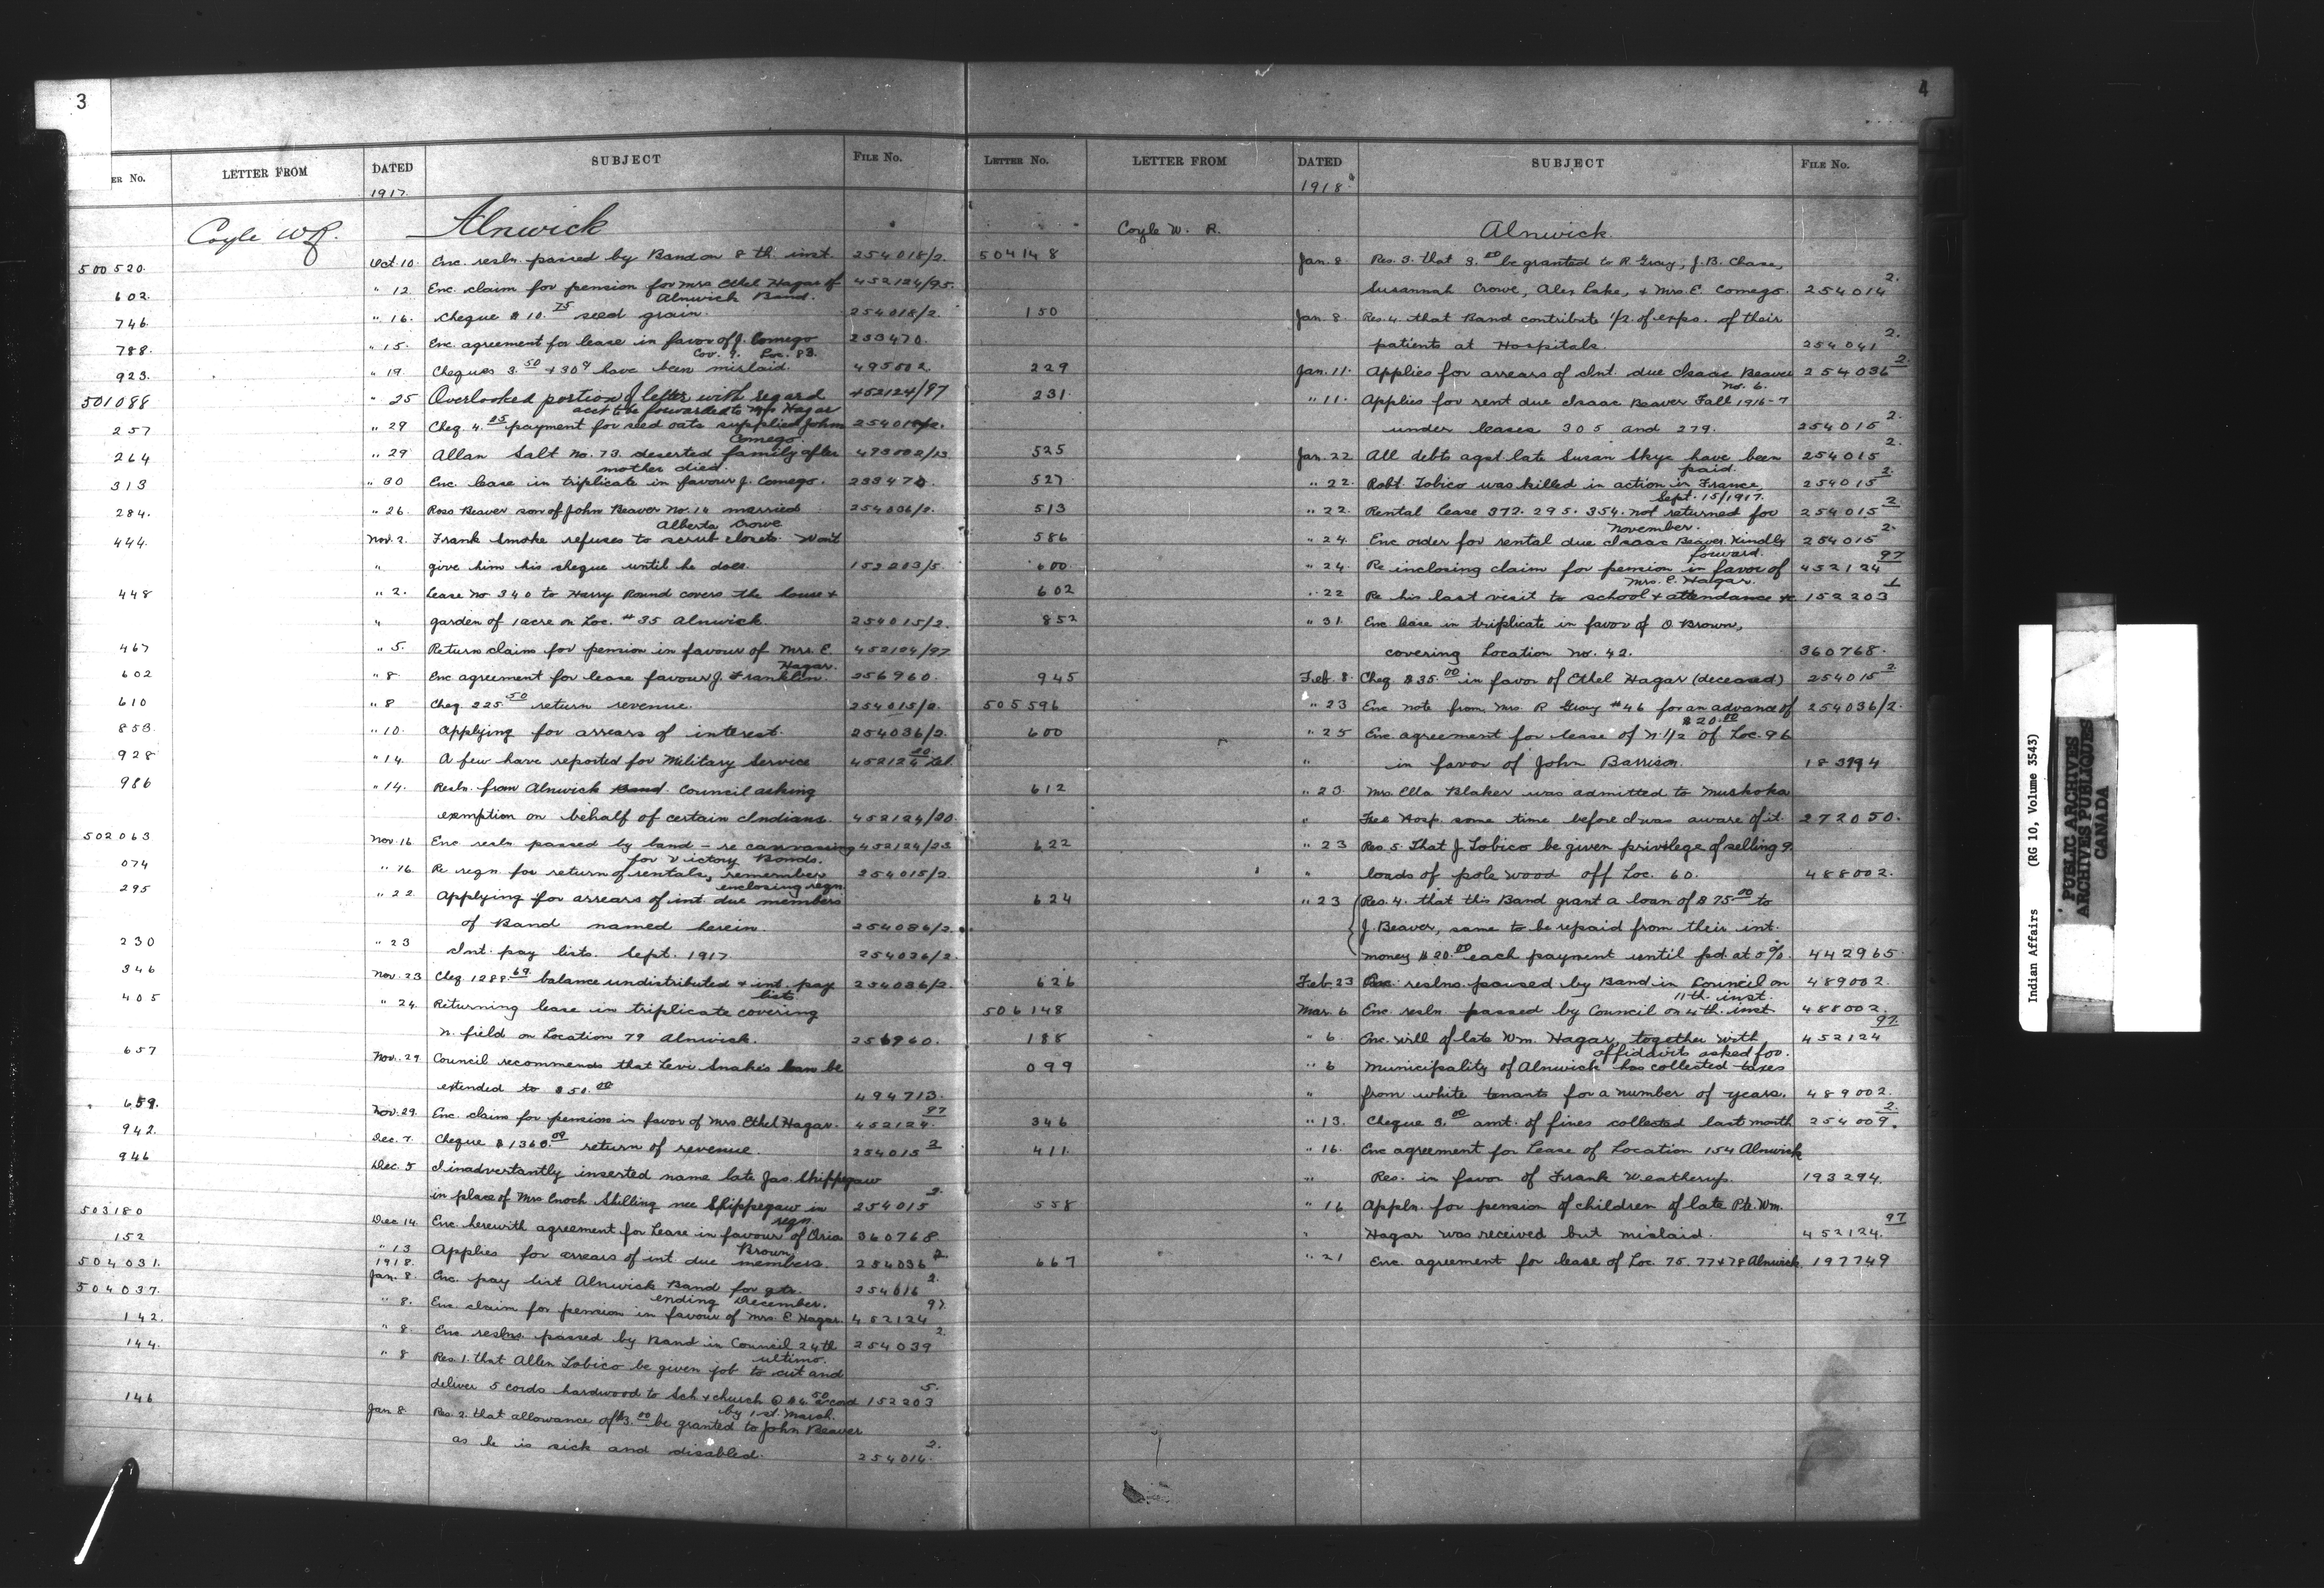 3
ER No. LETTER FROM DATED SUBJECT FILE No.
1917.
Coyle W R. Alnwick
500520. Oct. 10. Enc. resln. passed by Band on 8 th. inst. 254018/2.
602. " 12 Enc. claim for pension for Mrs Ethel Hagar of 452124/95.
Alnwick Band.
746. " 16. Cheque $10.75 seed grain. 254018/2.
788. " 15. Enc. agreement for lease in favor of J. Comego 253470.
Cov. 9. Loc. 83.
923. " 19. Cheques 3.50 + 309 have been mislaid. 495502.
501088 " 25 Overlooked portion of letter with regard 452124/97
acct to be forwarded to Mrs Hagar
257 " 29 Cheq. 4.85 payment for seed oats supplied John 254018/2.
Comego.
264 " 29 Allan Salt No. 73. deserted family after 493002/13
mother died.
313 " 30 Enc. lease in triplicate in favour J. Comego. 253470.
284. " 26. Ross Beaver son of John Beaver No. 14 married 254006/2.
Alberta Crowe
444. Nov. 2. Frank Smoke refuses to scrub closets. Wont
" give him his cheque until he does. 152203/5.
448 " 2. Lease no 340 to Harry Round covers the house &
" garden of 1 acre on Loc. #35 Alnwick. 254015/2.
467 " 5. Return claim for pension in favour of Mrs. E. 452124/97
Hagar.
602 " 8. Enc agreement for lease favour J. Franklin. 256960.
610 " 8 Cheq. 225.50 return revenue. 254015/2.
853. " 10. Applying for arrears of interest. 254036/2.
928 " 14. A few have reported for Military Service 452124 20.
986 " 14. Resln. from Alnwick Band Council asking
exemption on behalf of certain Indians. 452124/20.
502063 Nov. 16 Enc resln passed by band - re canvassing 452124/23
for Victory Bonds.
074 " 16. Re regn. for return of rentals, remember 254015/2.
enclosing regn.
295 " 22. Applying for arrears of int due members
of Band named herein. 254036/2.
230 " 23 Int. pay lists. Sept. 1917. 254036/2.
346 Nov. 23 Cheq. 1289.69 balance undistributed & int. pay 254036/2.
lists.
405 " 24. Returning lease in triplicate covering
N. field on Location 79 Alnwick. 256960.
657 Nov. 29. Council recommends that Levi Snake's loan be
extended to $50.00 494713.
659. Nov. 29. Enc. claim for pension in favor of Mrs. Ethel Hagar. 452124. 97
942. Dec. 7. Cheque $1360.00 return of revenue. 254015 2
946 Dec. 5 I inadvertantly inserted name late Jas. Shippegaw
in place of Mrs Enoch Shilling nee Shippegaw in 254015 2.
regn.
503180 Dec. 14. Enc. herewith agreement for Lease in favour of Oria 360768
Brown.
152 " 13 Applies for arrears of int due members. 254036 2.
1918.
504031. Jan. 8. Enc. pay list Alnwick Band for qtr. 254016 2.
ending December.
504037. " 8. Enc. claim for pension in favour of Mrs. E Hagar. 452124 97.
142. " 8. Enc reslns. passed by Band in Council 24th 254039 2.
ultimo.
144. " 8 Res. 1. that Allen Tobico be given job to cut and
deliver 5 cords hardwood to Sch & church @ $6.50 a cord 152203 5.
by 1 st. March.
146 Jan. 8. Res. 2. that allowance of $3.00 be granted to John Beaver
as he is sick and disabled. 254014. 2.
4
LETTER No. LETTER FROM DATED SUBJECT FILE No.
1918
Coyle W. R. Alnwick.
504148 Jan. 8 Res. 3. that 3.00 be granted to R. Gray, J. B. Chase,
Susannah Crowe, Alex Lake, & Mrs. E. Comego. 254014 2.
150 Jan. 8. Res. 4. that Band contribute 1/2 of exps. of their
patients at Hospitals. 254041 2.
229 Jan. 11. Applies for arrears of Int. due Isaac Beaver 254036 2
No. 6.
231. " 11. Applies for rent due Isaac Beaver Fall 1916-7
under leases 305 and 279. 254015 2.
525 Jan. 22 All debts agst late Susan Skye have been 254015 2.
paid.
527 " 22. Robt. Tobico was killed in action in France, 254015 2.
Sept. 15/1917.
513 " 22. Rental Lease 372. 295. 354. not returned for 254015 2
November.
586 " 24. Enc order for rental due Isaac Beaver. Kindly 254015 2.
forward.
600. " 24. Re inclosing claim for pension in favor of 452124 97
Mrs. E. Hagar.
602 " 22 Re his last visit to school & attendance &c 152203 1
852 " 31. Enc lease in triplicate in favor of O Brown,
covering Location No. 42. 360768.
945 Feb. 8. Cheq $35.00 in favor of Ethel Hagar (deceased) 254015 2.
505596 " 23 Enc note from Mrs. R Gray #46 for an advance of 254036/2.
$20.00
600 " 25 Enc. agreement for lease of N. 1/2 of Loc. 96
" in favor of John Barrison.
612 " 23. Mrs. Ella Blaker was admitted to Muskoka
" Free Hosp. some time before I was aware of it. 272050.
622 " 23 Res. 5. That J. Tobico be given privilege of selling 9
" loads of pole wood off Loc. 60. 488002.
624 " 23 Res. 4. that this Band grant a loan of $75.00 to
J. Beaver, same to be repaid from their int.
money $20.00 each payment until pd. at 5%. 442965.
626 Feb. 23 Enc. reslns. passed by Band in Council on 489002.
11 th. inst.
506148 Mar. 6 Enc. resln. passed by Council on 4 th. inst 488002.
188 " 6. Enc. will of late Wm. Hagar, together with 452124 97
affidavits asked for.
099 " 6 Municipality of Alnwick has collected taxes
" from white tenants for a number of years. 489002.
346 " 13. Cheque 3.00 amt. of fines collected last month 254009. 2.
411. " 16. Enc agreement for Lease of Location 154 Alnwick
" Res. in favor of Frank Weatherup. 193294.
558 " 16 Appln. for pension of children of late Pte. Wm.
" Hagar was received but mislaid. 452124. 97
667 " 21 Enc. agreement for lease of Loc. 75. 77 & 78 Alnwick. 197749
Indian Affairs (RG 10, Volume 3543)
PUBLIC ARCHIVES
ARCHIVES PUBLIQUES
CANADA